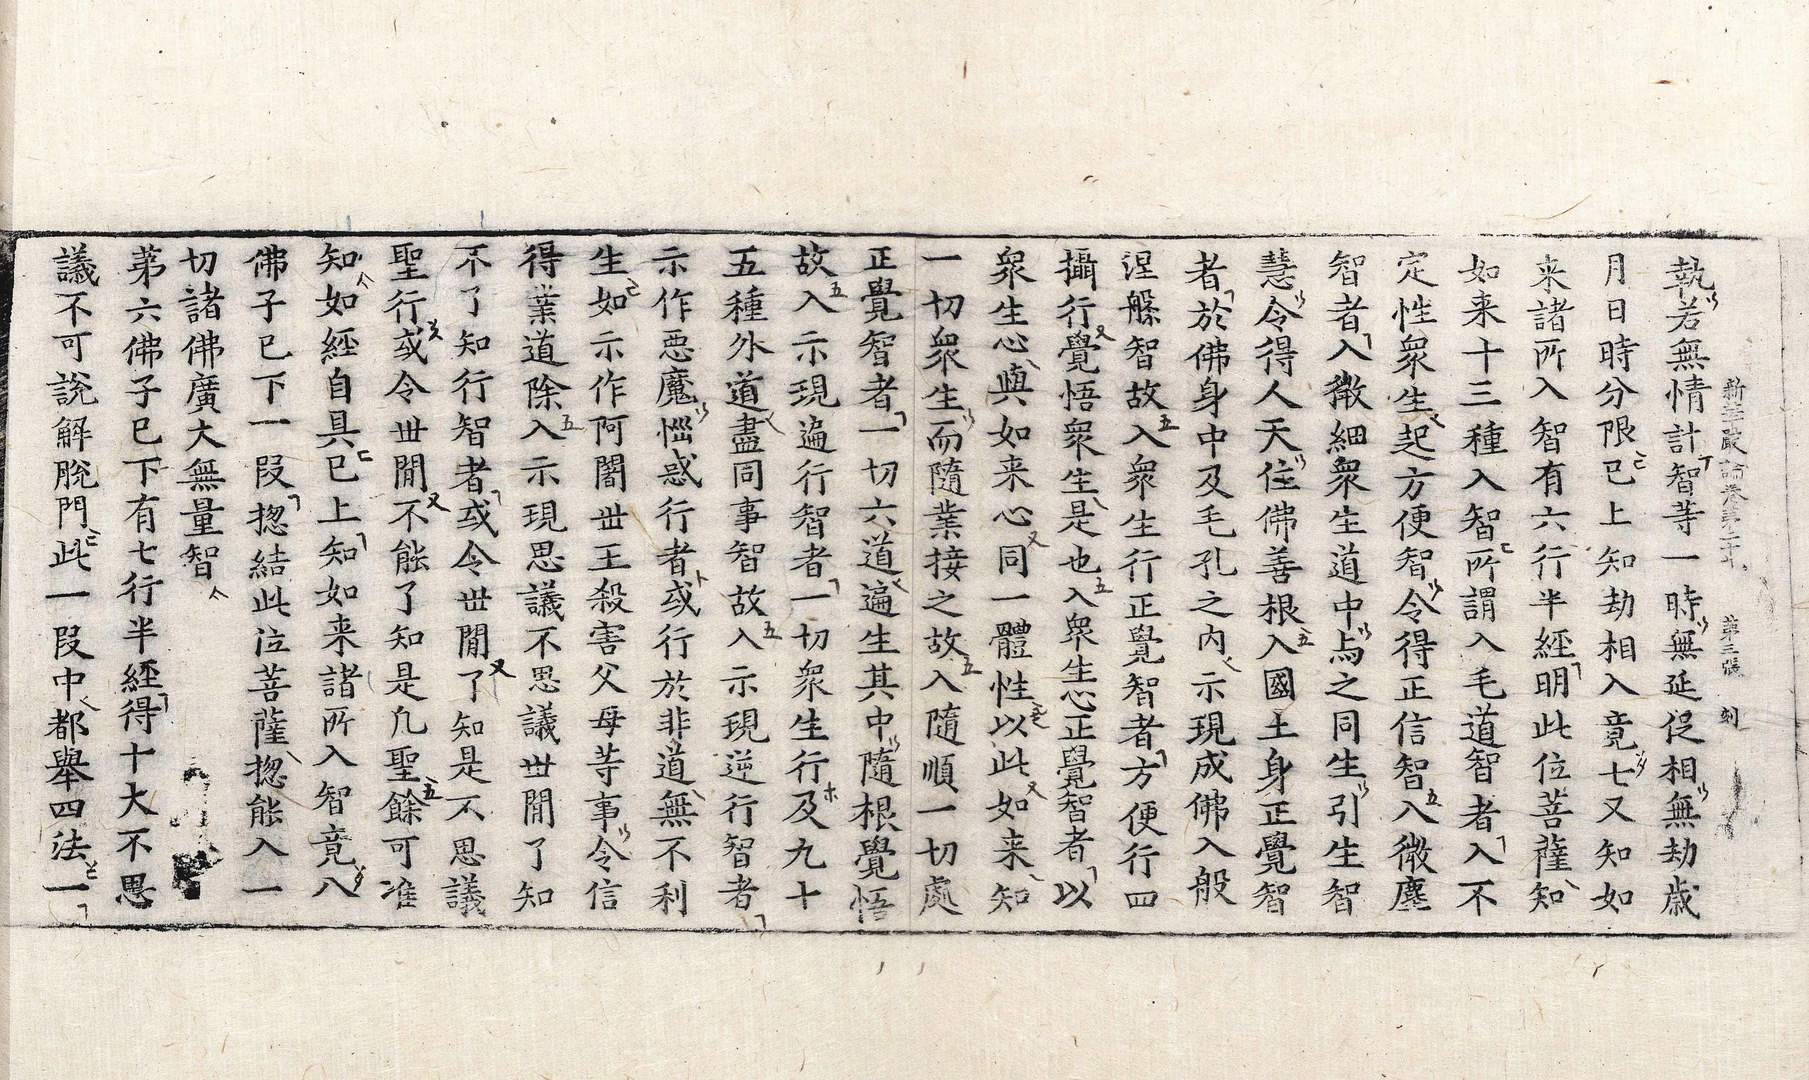 新華嚴論卷第三十 第三張 刻
執若無情計智等一時無延促相無劫歲
月日時分限已上知劫相入竟七又知如
来諸所入智有六行半經明此位菩薩知
如来十三種入智所謂入毛道智者入不
定性衆生起方便智令得正信智入微塵
智者入微細衆生道中与之同生引生智
慧令得人天住佛善根入國土身正覺智
者於佛身中及毛孔之內示現成佛入般
涅槃智故入衆生行正覺智者方便行四
攝行覺悟衆生是也入衆生心正覺智者以
衆生心與如来心同一體性以此如来知
一切衆生而隨業接之故入隨順一切處
正覺智者一切六道遍生其中隨根覺悟
故入示現遍行智者一切衆生行及九十
五種外道盡同事智故入示現逆行智者
示作惡魔惱惑行者或行於非道無不利
生如示作阿闍世王殺害父母等事令信
得業道除入示現思議不思議世閒了知
不了知行智者或令世閒了知是不思議
聖行或令世閒不能了知是凡聖餘可准
知如經自具已上知如来諸所入智竟八
佛子已下一段惣結此位菩薩惣能入一
切諸佛廣大無量智
第六佛子已下有七行半經得十大不思
議不可說解脫門此一段中都舉四法一